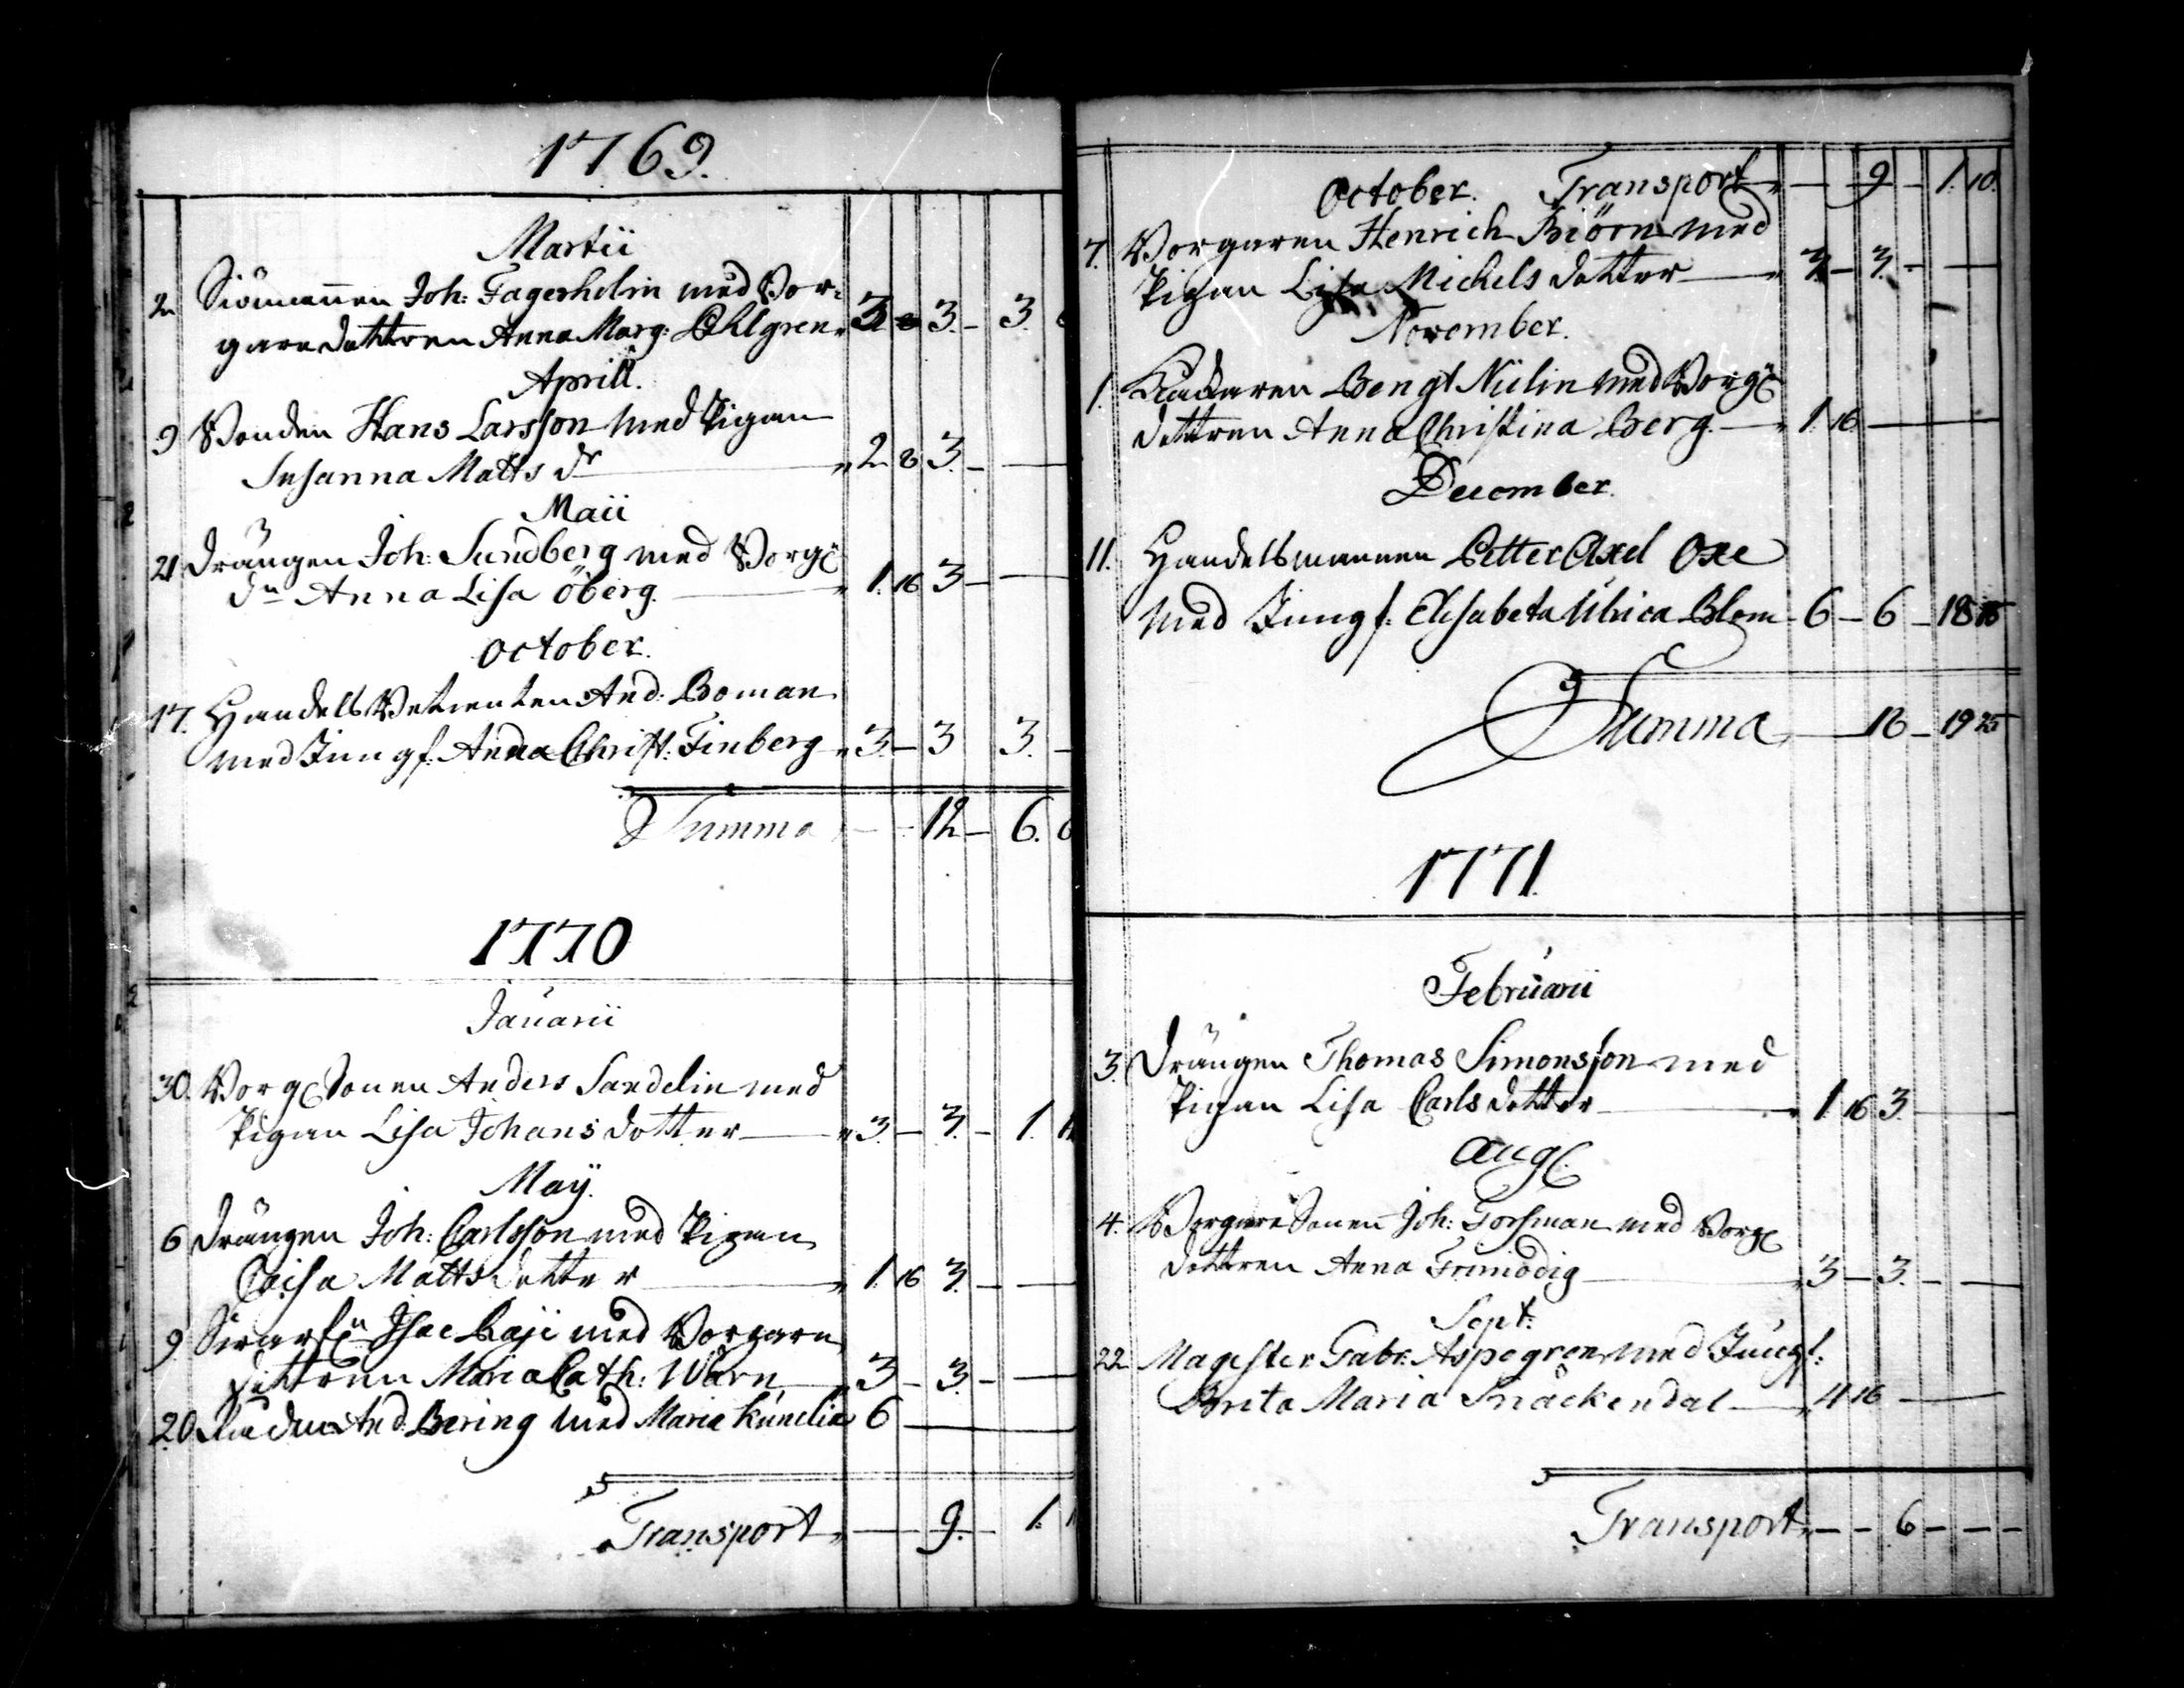 1769.
Martii
2. Siömannen Joh: Fagerholm med Bor-
garedottren Anna Marg: Ahlgren 3. 8 3. - 3.
Aprill.
9 Bonden Hans Larsson med Pigan
Susanna Matts dr 2 8 3. - -
Maii
21 Drängen Joh: Sundberg med Borg:
dn Anna Lisa Öberg. 1. 16 3 - -
October.
17. Handels Betienten And: Boman
med Jungf: Anna Christ: Finberg 3. - 3 3. -
Summa - - 12 - 6.
1770
Januarii
30. Borg: Sonen Anders Sandelin med
Pigan Lisa Johans dotter 3. - 3. - 1.
Maÿ.
6 Drängen Joh: Carlsson med Pigan
Caisa Matts dotter 1. 16 3. - -
9 Isac med Borgare
dottren Maria Cath: Warn 3 - 3. - -
20 And: Bering med Maria Kunelia 6
Transport - 9. - 1.
October. Transport - 9 - 1. 10.
7. Borgaren Henrich Biörn med
Pigan Lisa Michels dotter 3. - 3. - -
November.
1. Bengt Nielin med Borg:
dottren Anna Christina Berg. 1. 16 - -
December.
11. Handelsmannen Petter Axel Oxe
med Jungf: Elisabeta Ulrica Blom - 6 - 6 - 18 15
Summa - 18 - 19 25
1771.
Februarii
3. Drängen Thomas Simonsson med
Pigan Lisa Carls dotter 1 16 3. -
Aug:
4. Borgare Sonen Joh: Forsman med Borg:
dottren Anna Frimodig 3 - 3. - -
Sept:
22 Magister Gabr: Aspegren med Jungf:
Brita Maria Snäckendal 4 16 -
Transport - - 6 - - -